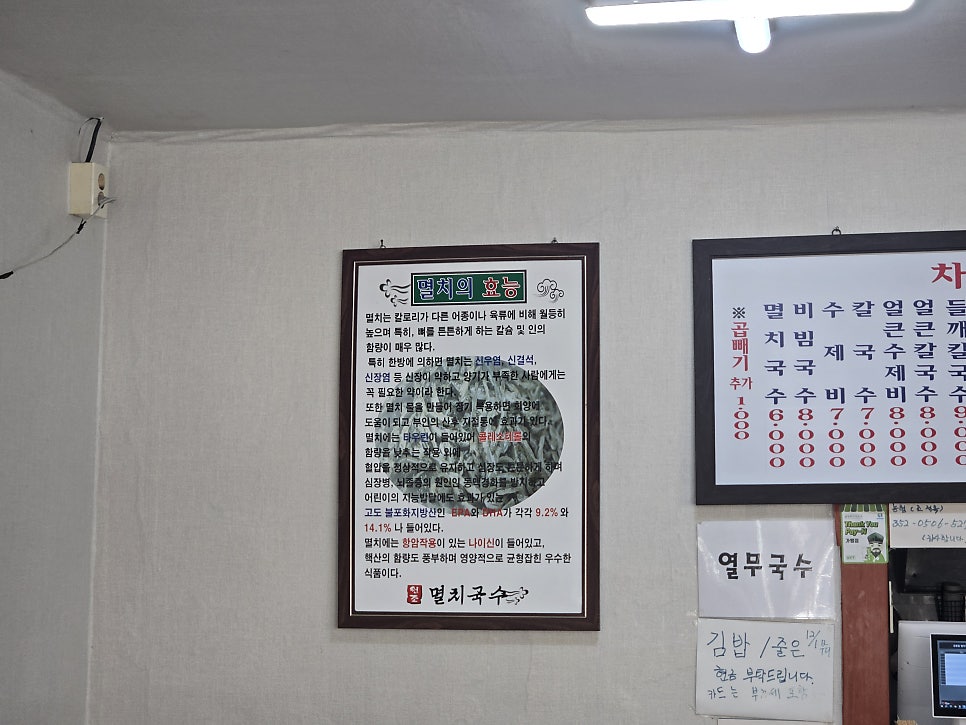 멸치의 효능
멸치는 칼로리가 다른 어종이나 육류에 비해 월등히
높으며 특히, 뼈를 튼튼하게 하는 칼슘 및 인의
함량이 매우 많다.
특히 한방에 의하면 멸치는 신우염, 신결석,
신장염 등 신장이 약하고 양기가 부족한 사람에게는
꼭 필요한 약이라 한다.
또한 멸치 물을 만들어 장기 복용하면 회양에
도움이 되고 부인의 산후 지절통에 효과가 있다.
멸치에는 타우린이 들어있어 콜레스테롤의
함량을 낮추는 작용 외에
혈압을 정상적으로 유지하고 심장도 튼튼하게 하며
심장병, 뇌졸증의 원인인 동맥경화를 방지하고
어린이의 지능발달에도 효과가 있는
고도 불포화지방산인 EPA와 DHA가 각각 9.2% 와
14.1% 나 들어있다.
멸치에는 항암작용이 있는 나이신이 들어있고,
핵산의 함량도 풍부하며 영양적으로 균형잡힌 우수한
식품이다.
원조 멸치국수
차
※ 곱빼기 추가 1.000
멸치국수 6.000
비빔국수 8.000
수제비 7.000
칼국수 7.000
얼큰수제비 8.000
얼큰칼국수 8.000
들깨칼국수 9.000
Thank You
Pay-N
352-0506-52
열무국수
김밥 / 줄은 12/1 부터
현금 부탁드립니다.
카드는 부가세 포함